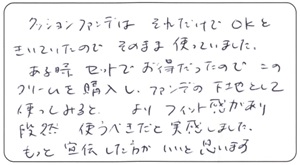 クッションファンデは それだけでOKと
きいていたので そのまま使っていました。
ある時 セットでお得だったので この
クリームを購入し、ファンデの下地として
使ってみると、より フィット感があり
段然 使うべきだと実感しました。
もっと 宣伝した方が いいと思います